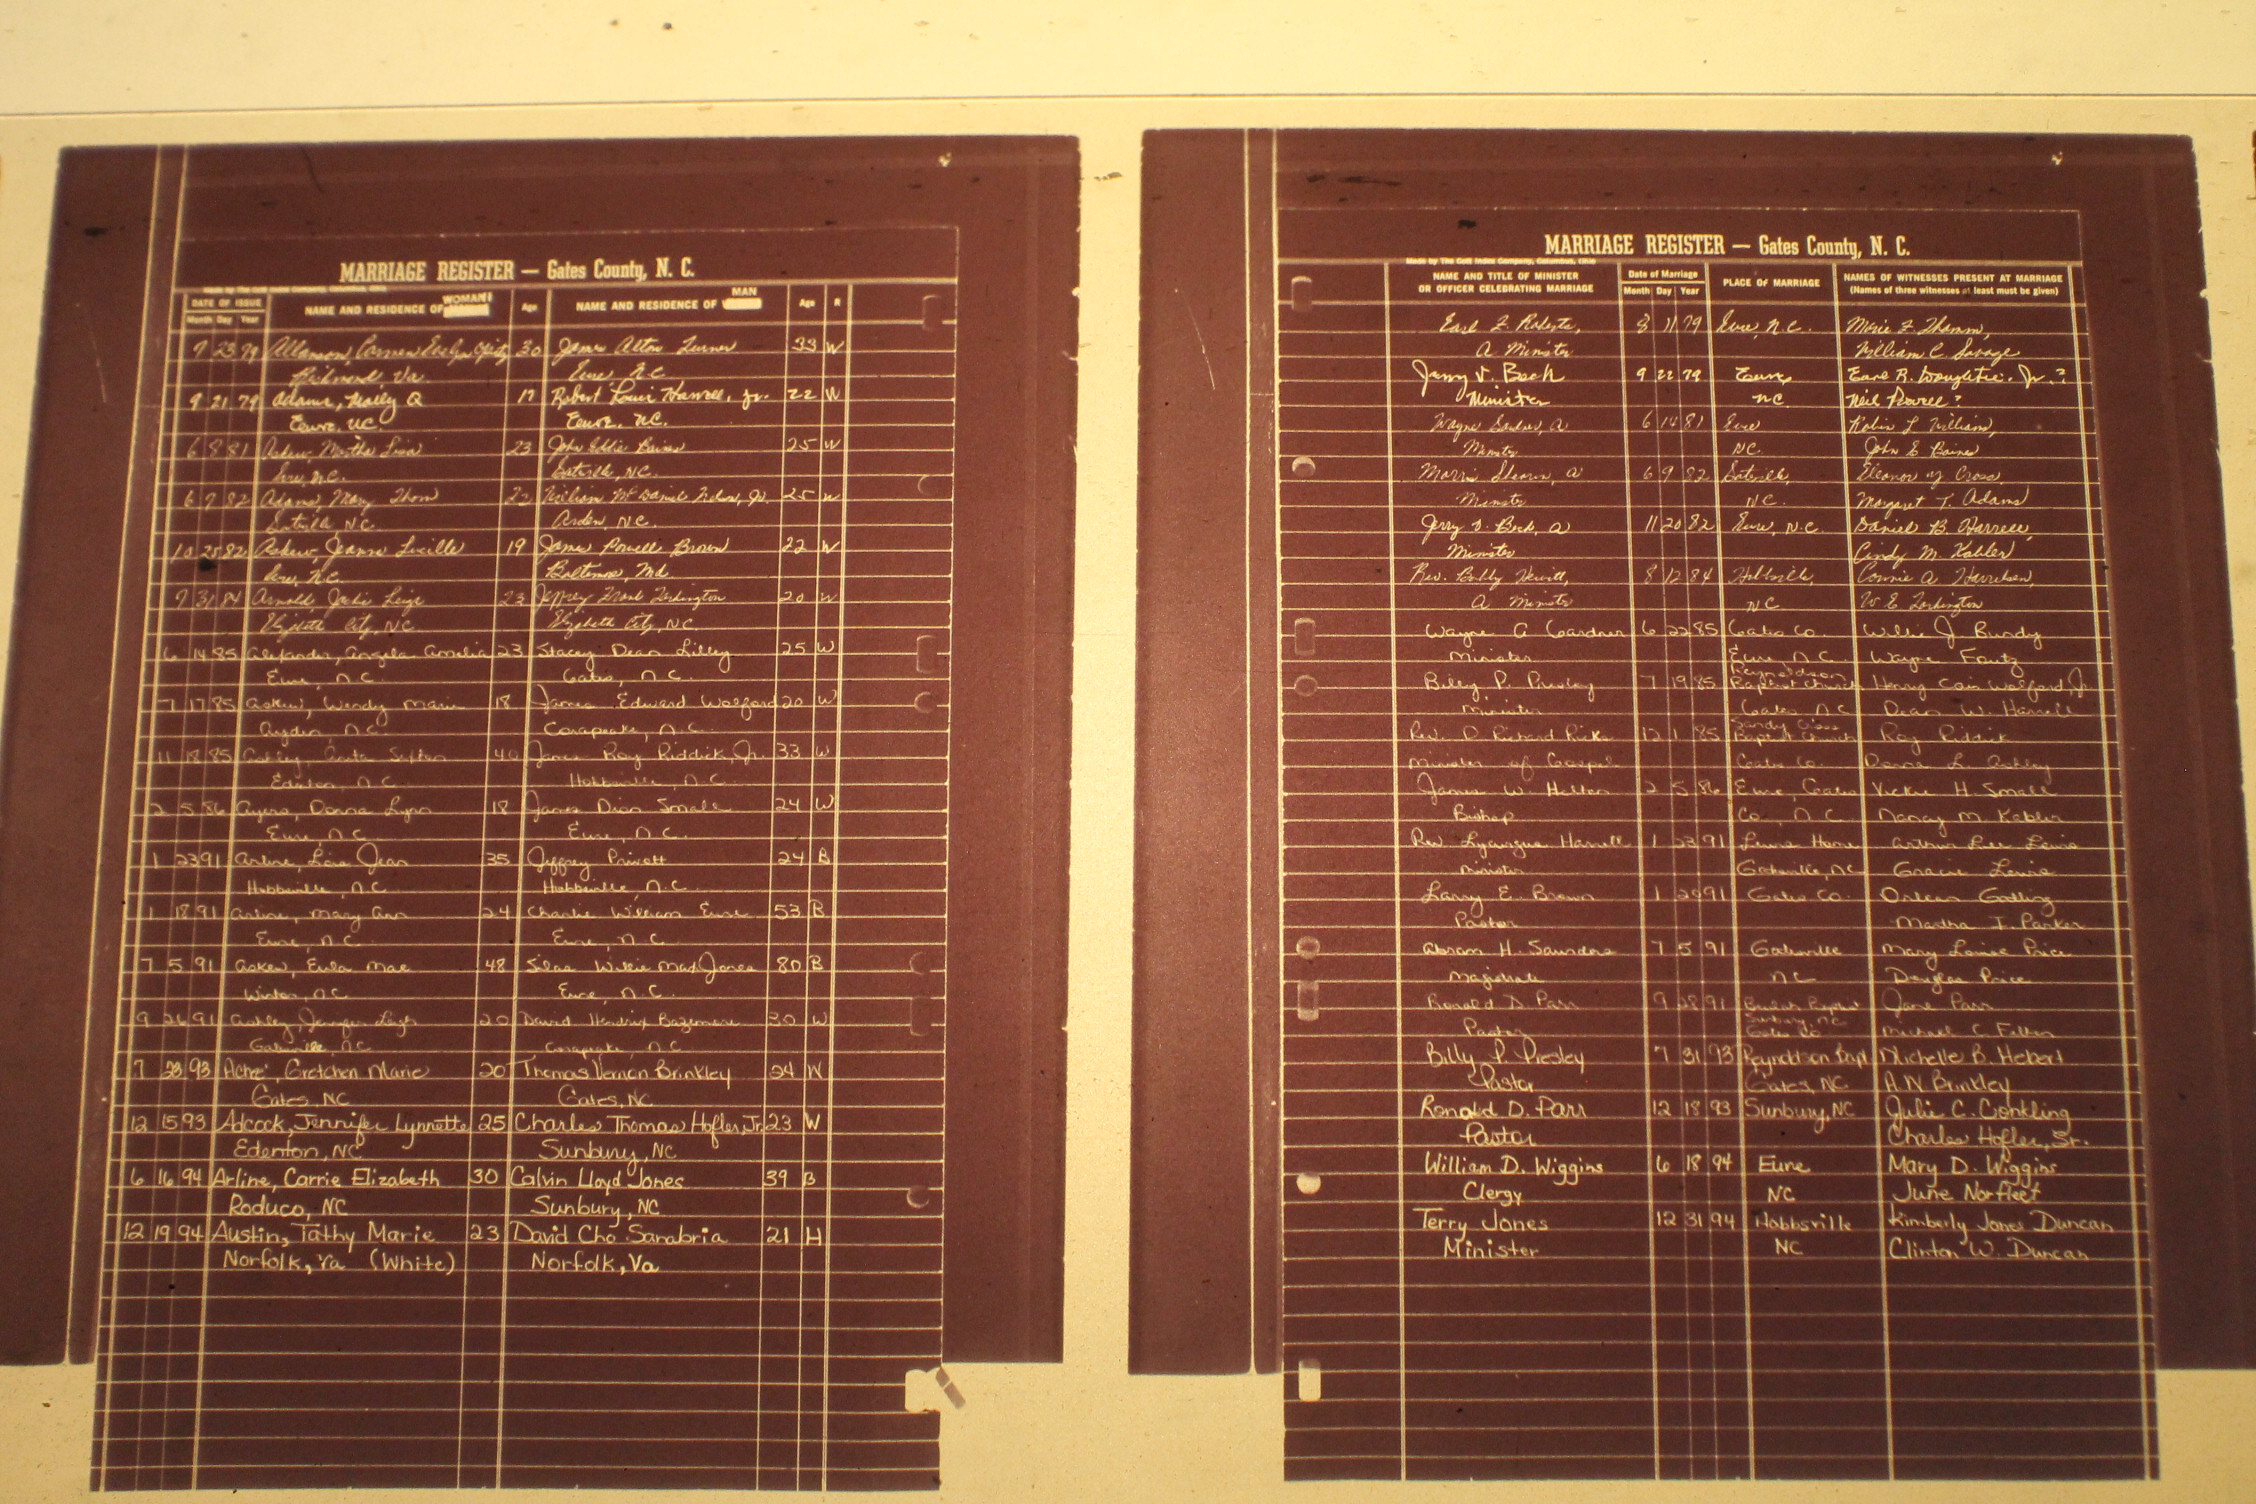 MARRIAGE REGISTER — Gates County, N. C.
DATE OF ISSUE
Month Day Year
NAME AND RESIDENCE OF WOMAN
Age
NAME AND RESIDENCE OF MAN
Age
R
9 23 79 Allamson, Carmen Evelyn 30 James Alton Turner 33 W
Richmond, Va. Eure, N.C.
9 21 79 Adams, Molly Q 17 Robert Louis Harrell, Jr. 22 W
Eure, NC Eure, NC.
6 8 81 Askew, Martha Lisa 23 John Eddie Baines 25 W
Eure, N.C. Gatesville, NC.
6 7 82 Adams, Mary Thom William McDaniel Nelson, Jr. 25 W
Gatesville NC. Arden, NC.
10 25 82 Askew, Jeanne Lucille 19 James Powell Brown 22 W
Eure, N.C. Baltimore, Md.
7 31 84 Arnold, Jackie Leigh 23 Jeffrey Frank Lockington 20 W
Elizabeth City, NC Elizabeth City, NC
6 14 85 Alexander, Angela Amelia 23 Stacey Dean Lilley 25 W
Eure, N.C. Gates, N.C.
7 17 85 Askew, Wendy Marie 18 James Edward Wolford 20 W
Ayden, N.C. Corapeake, N.C.
11 18 85 Ashley, Anita Sexton 40 James Roy Riddick, Jr. 33 W
Edenton, N.C. Hobbsville, N.C.
2 5 86 Ayers, Donna Lynn 18 James Dion Small 24 W
Eure, N.C. Eure, N.C.
1 23 91 Arline, Lois Jean 35 Jeffrey Privott 24 B
Hobbsville, N.C. Hobbsville, N.C.
1 18 91 Arline, Mary Ann 24 Charlie William Eure 53 B
Eure, N.C. Eure, N.C.
7 5 91 Askew, Eula Mae 48 Silas Wilkie Max Jones 80 B
Winton, N.C. Eure, N.C.
9 26 91 Ashley, Jennifer Leigh 20 David Hendrix Bazemore 30 W
Gatesville, NC Corapeake, N.C.
7 23 93 Acree, Gretchen Marie 20 Thomas Vernon Brinkley 24 W
Gates, NC Gates, NC
12 15 93 Adcock, Jennifer Lynnette 25 Charles Thomas Hofler, Jr. 23 W
Edenton, NC Sunbury, NC
6 16 94 Arline, Carrie Elizabeth 30 Calvin Lloyd Jones 39 B
Roduco, NC Sunbury, NC
12 19 94 Austin, Tathy Marie 23 David Cho Sanabria 21 H
Norfolk, Va (White) Norfolk, Va
MARRIAGE REGISTER — Gates County, N. C.
Made by The Cott Index Company, Columbus, Ohio
NAME AND TITLE OF MINISTER
OR OFFICER CELEBRATING MARRIAGE
Date of Marriage
Month Day Year
PLACE OF MARRIAGE
NAMES OF WITNESSES PRESENT AT MARRIAGE
(Names of three witnesses at least must be given)
Earl F. Roberts, 8 11 79 Eure, N.C. Marie F. Thamm,
A Minister William C. Savage
Jerry V. Beck 9 22 79 Eure Earl R. Doughtie, Jr.?
Minister NC Neil Powell?
Wayne Sanders, A 6 14 81 Eure Robin L Williams,
Minister NC. John E Baines
Morris Shearin, A 6 9 82 Gatesville, Eleanor G Cross,
Minister NC. Margaret T. Adams
Jerry V. Beck, A 11 20 82 Eure, N.C. Daniel B. Harrell,
Minister Cindy M. Kahler
Rev. Bobby Hewitt, 8 12 84 Hobbsville, Connie A Harrelson,
A Minister NC W E Lockington
Wayne A Gardner 6 22 85 Gates Co. Willie J Bundy
Minister Eure, N.C. Wayne Foutz
Billy P. Presley 7 19 85 Reynoldson Baptist Church Henry Cain Wolford, Jr.
Minister Gates N.C. Dean W. Harrell
Rev. P Richard Ricks 12 1 85 Sandy Cross Baptist Church Roy Riddick
Minister of Gospel Gates Co. Donna L. Ashley
James W. Helton 2 5 86 Eure, Gates Vickie H. Small
Bishop Co., N.C. Nancy M. Kebler
Rev. Lycurgus Harrell 1 23 91 Lewis Home Arthur Lee Lewis
Minister Gatesville, N.C. Gracie Lewis
Larry E. Brown 1 20 91 Gates Co. Orlean Gatling
Pastor Martha F. Parker
Abram H. Saunders 7 5 91 Gatesville Mary Louise Price
Magistrate N.C. Douglas Price
Ronald D. Parr 9 28 91 Beulah Baptist Jane Parr
Sunbury, NC
Pastor Gates Co Michael C. Felton
Billy P. Presley 7 31 93 Reynoldson Bapt. Michelle B. Hebert
Pastor Gates, NC A.N. Brinkley
Ronald D. Parr 12 18 93 Sunbury, NC Julie C. Conkling
Pastor Charles Hofler, Sr.
William D. Wiggins 6 18 94 Eure Mary D. Wiggins
Clergy NC June Norfleet
Terry Jones 12 31 94 Hobbsville Kimberly Jones Duncan
Minister NC Clinton W. Duncan